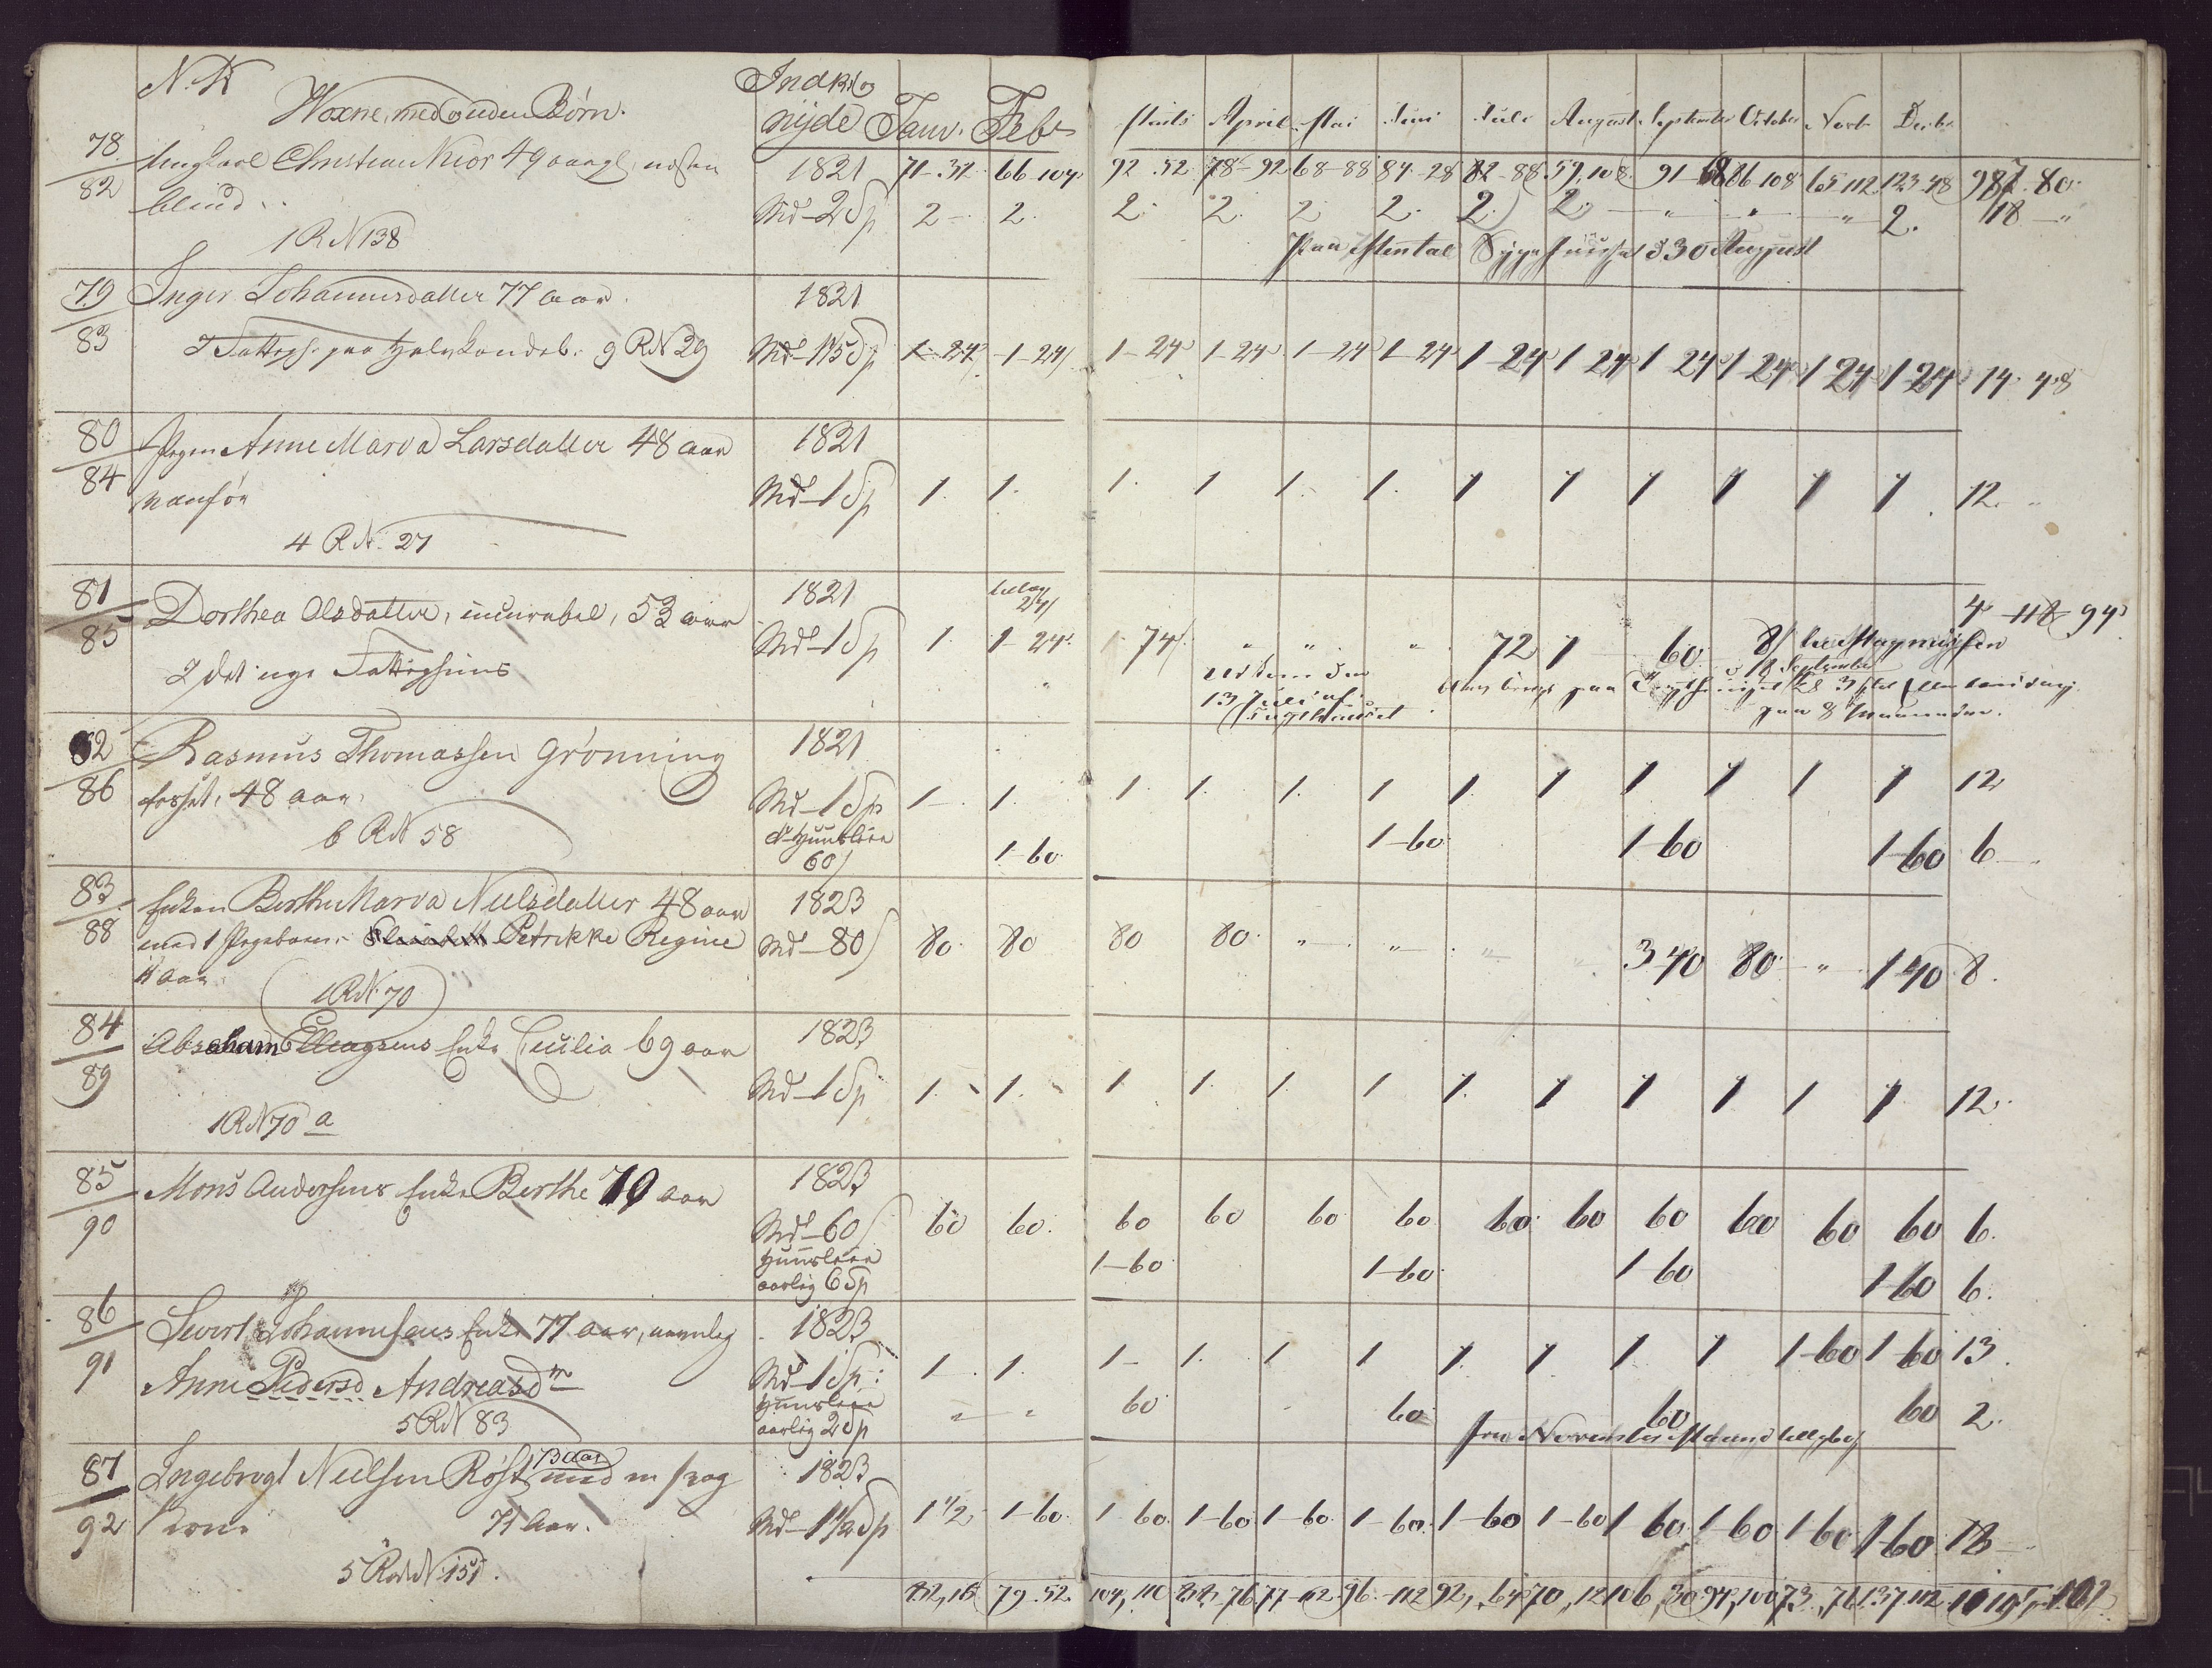 N. K Indk og
Voxne, med og uden Børn. nyde Janv. Feb. Marts April Mai Juni Juli August September October Novb Decbr
71-32 66-104 92-52 78-92 68-88 84-28 82-88 59,108 91-68 86-108 65-112 123-48 987-80
78/82 Ungkarl Christian Nior 49 aargl, næsten 1821
blind Md 2 Sp 2 2 2 2 2 2 2 2 " " " 2 18 "
1 R N 138 paa Mental Sygehuset d 30 August
79/83 Inger Johannesdatter 77 aar 1821
I Fattigh. paa 9 R N 29 Md 1 1/5 Sp 1-24 1-24 1-24 1-24 1-24 1-24 1-24 1 24 1 24 1 24 1 24 1-24 14 48
80/84 Pigen Anne Marva Larsdatter 48 aar 1821
vanfør Md 1 Sp 1 1 1 1 1 1 1 1 1 1 1 1 12
4 R N. 27
81/85 Dorthea Olsdatter, incurabel, 53 aar 1821 4 94
Md 1 Sp 1 1-24 74 " " " 72 1 60
I det nye Fattighuus 13 Juli af d 18 September
Tugthuuset paa 8 Maaneder.
82/86 Rasmus Thomassen Grønning 1821
48 aar Md 1 Sp 1 1 1 1 1 1 1 1 1 1 1 1 12
6 R N 58 Huusleie
60 1-60 1-60 1-60 1-60 6
83/88 Enken Berthe Marva Neelsdatter 48 aar 1823
med 1 Pigebarn Petrikke Regine Md 80 80 80 80 80 " " " 3 40 80 " 1 40 8
11 aar 1 R N. 70
84/89 Abraham Ellingsens Enke Cecilia 69 aar 1823
Md 1 Sp 1 1 1 1 1 1 1 1 1 1 1 1 12
1 R N 70 a
85/90 Mons Andersens Enke Berthe 70 aar 1823
Md 60 60 60 60 60 60 60 60 60 60 60 60 60 6
Huusleie
aarlig 6 Sp 1-60 1-60 1 60 1-60 6
86/91 Sivert Johannesens Enke 77 aar, 1823
Anne Pedersd Andreasd Md 1 Sp 1 1 1 1 1 1 1 1 1 1 1-60 1 60 13
5 R N 83 Huusleie
aarlig 2 Sp " " 60 60 60 60 2
fra November Maaned
87/92 Ingebregt Neelsen Røst 73 aar med en svag 1823
Kone 71 Aar. Md 1 1/2 Sp 1 1/2 1-60 1 60 1-60 1-60 1-60 1-60 1-60 1 60 1-60 1-60 1-60 18
5 Rode N. 151
82,16 79-52 104,110 88,76 77-62 96-112 92,64 70,12 106,30 94,100 73,76 137,112